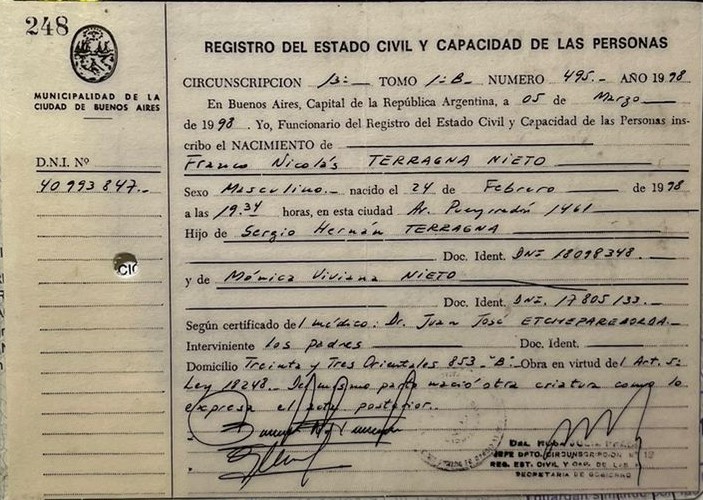 248
MUNICIPALIDAD DE LA
CIUDAD DE BUENOS AIRES
D.N.I. Nº
40993847.-
REGISTRO DEL ESTADO CIVIL Y CAPACIDAD DE LAS PERSONAS
CIRCUNSCRIPCION 13ª TOMO 1ºB NUMERO 495.- AÑO 1998
En Buenos Aires, Capital de la República Argentina, a 05 de Marzo
de 1998. Yo, Funcionario del Registro del Estado Civil y Capacidad de las Personas ins-
cribo el NACIMIENTO de
Franco Nicolás TERRAGNA NIETO
Sexo Masculino.- nacido el 24 de Febrero de 1998
a las 19.34 horas, en esta ciudad Av. Pueyrredón 1461
Hijo de Sergio Hernán TERRAGNA
Doc. Ident. DNI 18098348.
y de Mónica Viviana NIETO
Doc. Ident. DNI. 17805133.-
Según certificado del médico: Dr. Juan José ETCHEPAREBORDA.-
Interviniente los padres Doc. Ident.
Domicilio Treinta y Tres Orientales 853 "B"- Obra en virtud del Art. 5º
Ley 18248.- Del mismo parto nació otra criatura como lo
expresa el acta posterior.-
JEFE DPTO. CIRCUNSCRIPCION Nº 13
REG. EST. CIVIL Y CAP. DE LAS
SECRETARIA DE GOBIERNO